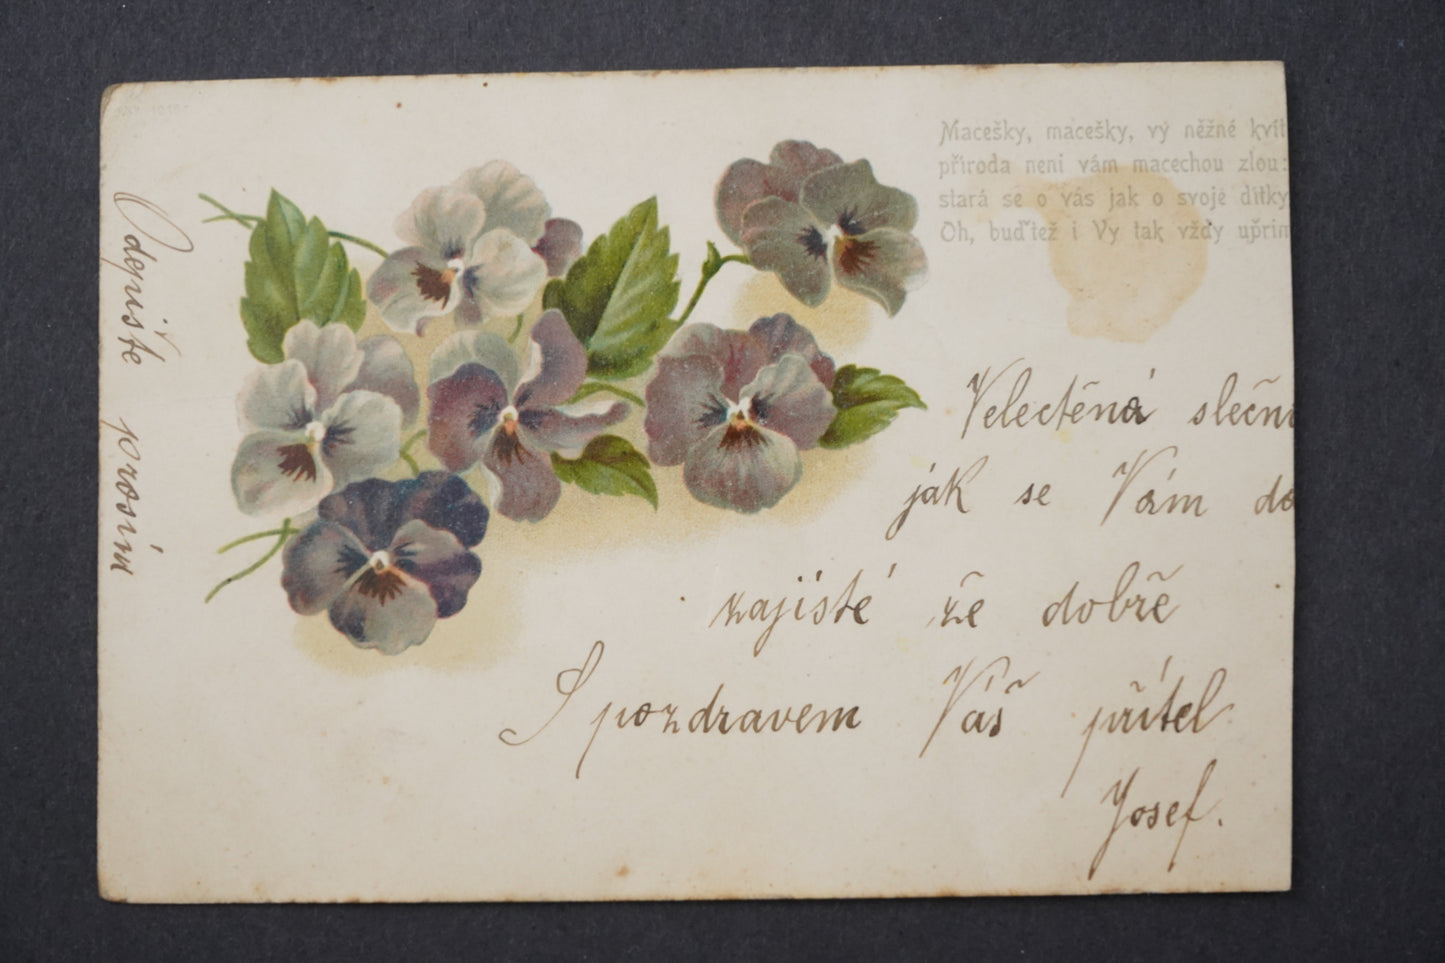 Macešky, macešky, vý něžné kvít
příroda neni vám macechou zlou:
stará se o vás jak o svoje dítky
Oh, buďtež i Vy tak vždy upřím
Velectěná slečn
jak se Vám da
zajisté že dobře
S pozdravem Váš přítel
Josef.
Odepište prosím